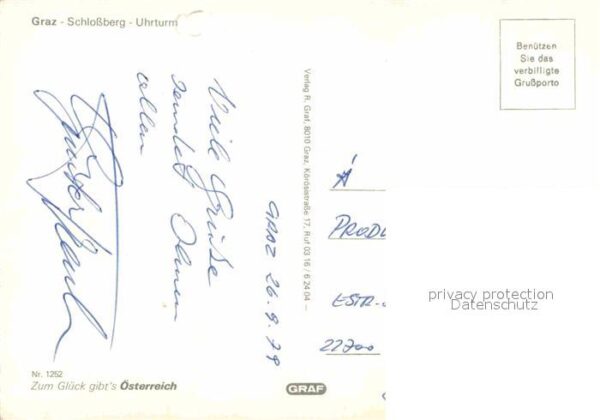 Graz - Schloßberg - Uhrturm
Benützen
Sie das
verbilligte
Grußporto
Viele Grüße
sendet Ihnen
allen
GRAZ 26.9.79
Verlag R. Graf, 8010 Graz, Körösistraße 17, Ruf 03 16 / 6 24 04 –
Á
PRODU
ESTR.
22700
privacy protection
Datenschutz
Nr. 1252
Zum Glück gibt's Österreich
GRAF